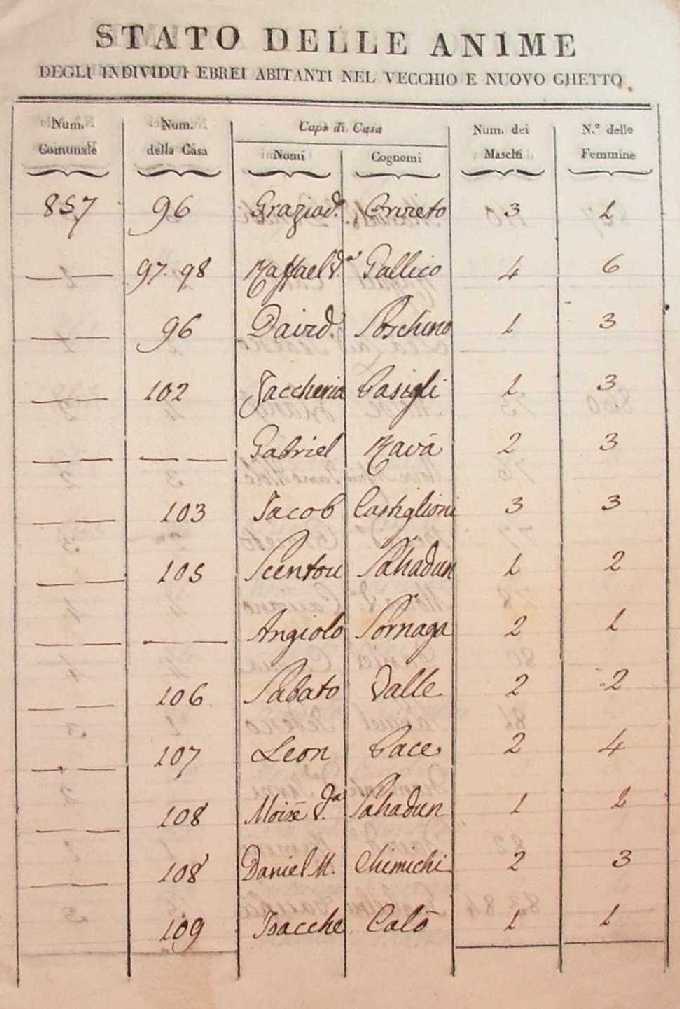 STATO DELLE ANIME
DEGLI INDIVIDUI EBREI ABITANTI NEL VECCHIO E NUOVO GHETTO.
Num. Comunale Num. della Casa Capo di Casa Num. dei Maschi N.º delle Femmine
Nomi Cognomi
857 96 Graziad.º Orvieto 3 1
97. 98 Raffael Gallico 4 6
96 David 1 3
102 Jaccheria 1 3
Gabriel Ravà 2 3
103 Jacob Castiglioni 3 3
105 Scentou Sahadun 1 2
Angiolo Pornaga 2 1
106 Sabato Valle 2 2
107 Leon Pace 2 4
108 Moisè Sahadun 1 2
108 Daniel M. Chimichi 2 3
109 Isacche Calò 1 1